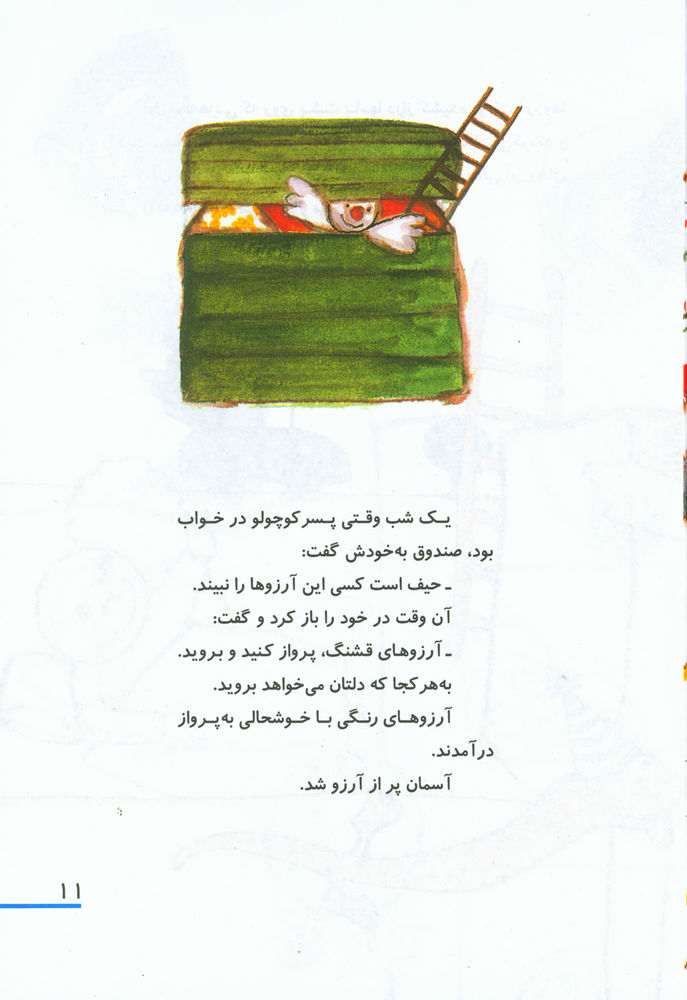 یک شب وقتی پسر کوچولو در خواب
بود، صندوق به‌خودش گفت:
ـ حیف است کسی این آرزوها را نبیند.
آن وقت در خود را باز کرد و گفت:
ـ آرزوهای قشنگ، پرواز کنید و بروید.
به‌هر کجا که دلتان می‌خواهد بروید.
آرزوهای رنگی با خوشحالی به‌پرواز
درآمدند.
آسمان پر از آرزو شد.
۱۱